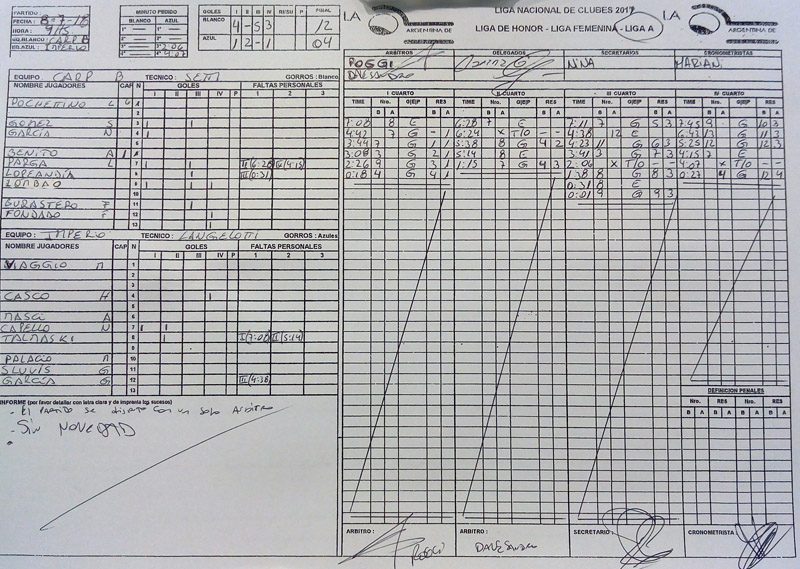 PARTIDO:
FECHA: 8-7-18
HORA: 9:15
EQ.BLANCO: CARP B
EQ.AZUL: IMPERIO
MINUTO PEDIDO
BLANCO AZUL
1º 1º
2º 2º
3º 3º 2:06
4º 4º 4:07
GOLES I II III IV RESU P FINAL
BLANCO 4 - 5 3 12
AZUL 1 2 - 1 04
LIGA NACIONAL DE CLUBES 2017
LIGA DE HONOR - LIGA FEMENINA - LIGA A
LA
ARGENTINA DE
LA
ARGENTINA DE
ARBITROS DELEGADOS SECRETARIOS CRONOMETRISTAS
POGGI NINA MARIAN
EQUIPO: CARP B TECNICO: SETTI GORROS: Blanco
NOMBRE JUGADORES CAP N GOLES FALTAS PERSONALES
I II III IV P 1 2 3
POCHETTINO L
GOMEZ S 3
GARCIA N 4
BENITO A
PARGA L 7 II(6:28) II(4:15)
LOPEANDIA 8 III(0:31)
ZOMBAO 9
10
GURASTERO F 11
FONDADO F 12
13
EQUIPO: IMPERIO TECNICO: LANGELOTTI GORROS: Azules
NOMBRE JUGADORES CAP N GOLES FALTAS PERSONALES
I II III IV P 1 2 3
VIAGGIO M 1
2
3
CASCO H 4
5
MASCI A 6
CAPELLO N 7
TALMASKI 8 I(7:08) II(5:14)
9
PALACIO M 10
SLUVIS G 11
GARCIA G 12 III(4:38)
13
INFORME (por favor detallar con letra clara y de imprenta log. sucesos)
- El PARTIDO SE DISPUTO CON UN SOLO ARBITRO
- SIN NOVEDAD
I CUARTO II CUARTO III CUARTO IV CUARTO
TIME Nro. G|E|P RES TIME Nro. G|E|P RES TIME Nro. G|E|P RES TIME Nro. G|E|P RES
B A B A B A B A
7:08 8 E 6:28 7 E 7:11 7 G 5 3 7:45 9 G 10 3
4:42 7 G - 1 6:24 X T/O - - 4:38 12 E 6:43 13 G 11 3
3:44 7 G 1 1 5:38 8 G 4 2 4:23 11 G 6 3 5:25 12 G 12 3
3:08 3 G 2 1 5:14 8 E 3:41 3 G 7 3 4:15 7 E
2:26 9 G 3 1 1:15 7 G 4 3 2:06 X T/O - - 4:07 X T/O - -
0:18 4 G 4 1 1:38 8 G 8 3 0:27 4 G 12 4
0:31 8 E
0:01 9 G 9 3
DEFINICION PENALES
Nro. RES Nro. RES
B A B A B A B A
ARBITRO: POGGI ARBITRO: SECRETARIO: CRONOMETRISTA: